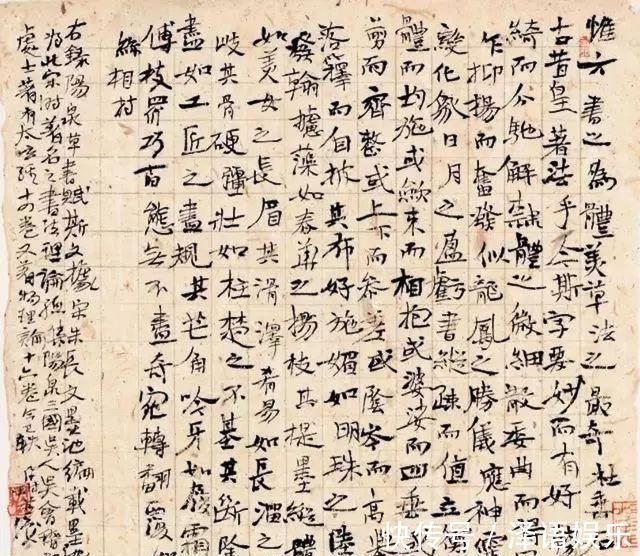 惟六書之為體美草法之最奇杜垂
古昔皇著法乎今斯字要妙而有好
綺而分馳解隸體之微細散委曲而
乍抑揚而奮發似龍鳳之勝儀應神
變化象日月之盈虧書縱竦而值立
體而均施或斂束而相抱或婆娑而四垂
剪而齊整或上下而參差或陰岑而高
落籜而自披其布好施媚如明珠之陸
發翰攄藻如春華之楊枝其提墨縱體
如美女之長眉其滑澤肴易如長溜之
歧其骨硬彊壯如柱礎之不基其斷除
盡如工匠之盡規其芒角吟牙如嚴霜
傅枝眾巧百態無不盡奇宛轉翻覆
絲相持
右錄陽泉草書賦斯文據宋朱長文墨池編載墨池
為北宋時著名之書法理論陽泉三國吳人吳會稽
處士著有太玄經十四卷又著物理論十六卷今已軼
快传号／泽语娱乐